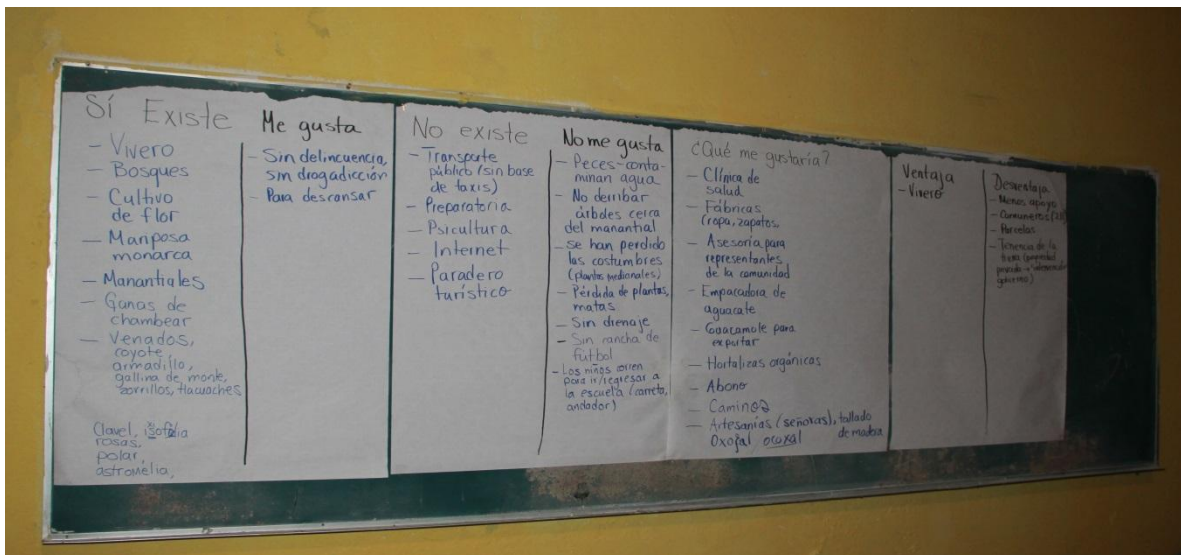 Sí Existe
- Vivero
- Bosques
- Cultivo
de flor
- Mariposa
monarca
- Manantiales
- Ganas de
chambear
- Venados,
coyote,
armadillo,
gallina de monte,
zorrillos, tlacuaches
Clavel,
rosas.
polar,
astromelia,
Me gusta
- Sin delincuencia,
sin drogadicción
- Para descansar
No existe
- Transporte
público (sin base
de taxis)
- Preparatoria
- Psicultura
- Internet
- Paradero
turístico
No me gusta
- Peces-conta-
minan agua
- No derribar
árboles cerca
del manantial
- Se han perdido
las costumbres
(plantas medionales)
- Pérdida de plantas,
matas
- Sin drenaje
- Sin cancha de
fútbol
- Los niños corren
para ir/regresar a
la escuela (carreta,
andador)
¿Qué me gustaría?
- Clínica de
salud
- Fábricas
(ropa, zapatos.
- Asesoría para
representantes
de la comunidad
- Empacadora de
aguacate
- Guacamole para
exportar
- Hortalizas orgánicas
- Abono
- Camin@s
- Artesanías (señoras), tallado
de madera
Oxojal ocoxal
Ventaja
- Vivero
Desventaja
- Menos apoyo
- Comuneros
- Parcelas
- Tenencia de la
tierra (propiedad
privada
gobierno)